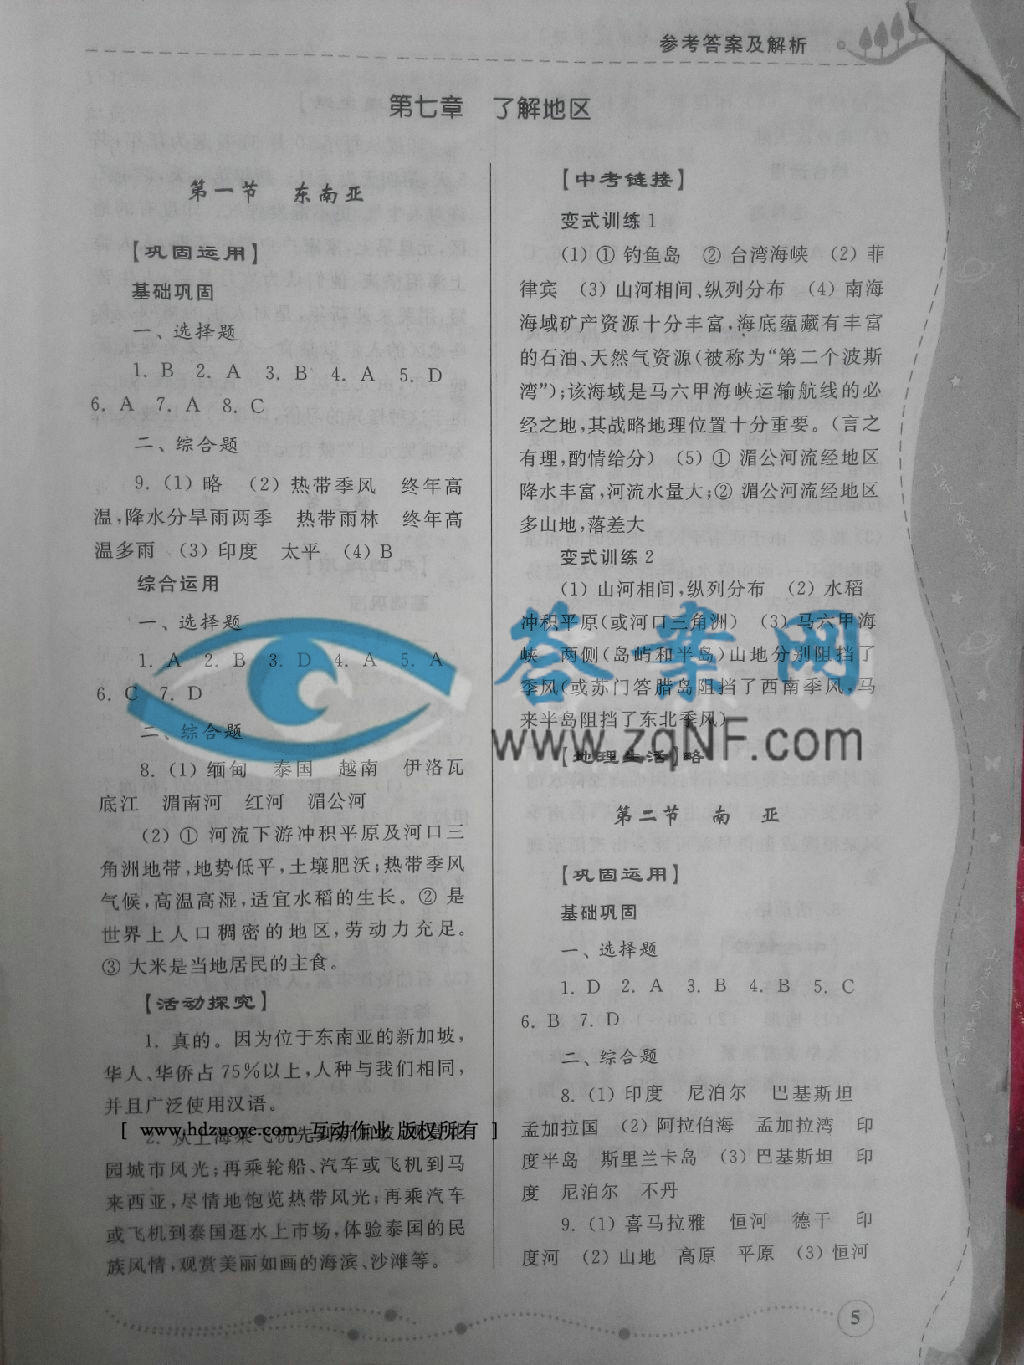 参考答案及解析
第七章 了解地区
第一节 东南亚
【巩固运用】
基础巩固
一、选择题
1. B 2. A 3. B 4. A 5. D
6. A 7. A 8. C
二、综合题
9. (1) 略 (2) 热带季风 终年高
温,降水分旱雨两季 热带雨林 终年高
温多雨 (3) 印度 太平 (4) B
综合运用
一、选择题
1. A 2. B 3. D 4. A 5. A
6. C 7. D
二、综合题
8. (1) 缅甸 泰国 越南 伊洛瓦
底江 湄南河 红河 湄公河
(2) ① 河流下游冲积平原及河口三
角洲地带,地势低平,土壤肥沃;热带季风
气候,高温高湿,适宜水稻的生长。② 是
世界上人口稠密的地区,劳动力充足。
③ 大米是当地居民的主食。
【活动探究】
1. 真的。因为位于东南亚的新加坡,
华人、华侨占 75%以上,人种与我们相同,
并且广泛使用汉语。
[ www.hdzuoye.com 互动作业 版权所有 ]
2. 从上海乘飞机先到新加坡
园城市风光;再乘轮船、汽车或飞机到马
来西亚,尽情地饱览热带风光;再乘汽车
或飞机到泰国逛水上市场,体验泰国的民
族风情,观赏美丽如画的海滨、沙滩等。
【中考链接】
变式训练 1
(1) ① 钓鱼岛 ② 台湾海峡 (2) 菲
律宾 (3) 山河相间、纵列分布 (4) 南海
海域矿产资源十分丰富,海底蕴藏有丰富
的石油、天然气资源(被称为“第二个波斯
湾”);该海域是马六甲海峡运输航线的必
经之地,其战略地理位置十分重要。(言之
有理,酌情给分) (5) ① 湄公河流经地区
降水丰富,河流水量大;② 湄公河流经地区
多山地,落差大
变式训练 2
(1) 山河相间,纵列分布 (2) 水稻
冲积平原(或河口三角洲) (3) 马六甲海
峡 两侧(岛屿和半岛)山地分别阻挡了
季风(或苏门答腊岛阻挡了西南季风,马
来半岛阻挡了东北季风)
答案网
www.zqNF.com
【地理生活】略
第二节 南亚
【巩固运用】
基础巩固
一、选择题
1. D 2. A 3. B 4. B 5. C
6. B 7. D
二、综合题
8. (1) 印度 尼泊尔 巴基斯坦
孟加拉国 (2) 阿拉伯海 孟加拉湾 印
度半岛 斯里兰卡岛 (3) 巴基斯坦 印
度 尼泊尔 不丹
9. (1) 喜马拉雅 恒河 德干 印
度河 (2) 山地 高原 平原 (3) 恒河
5